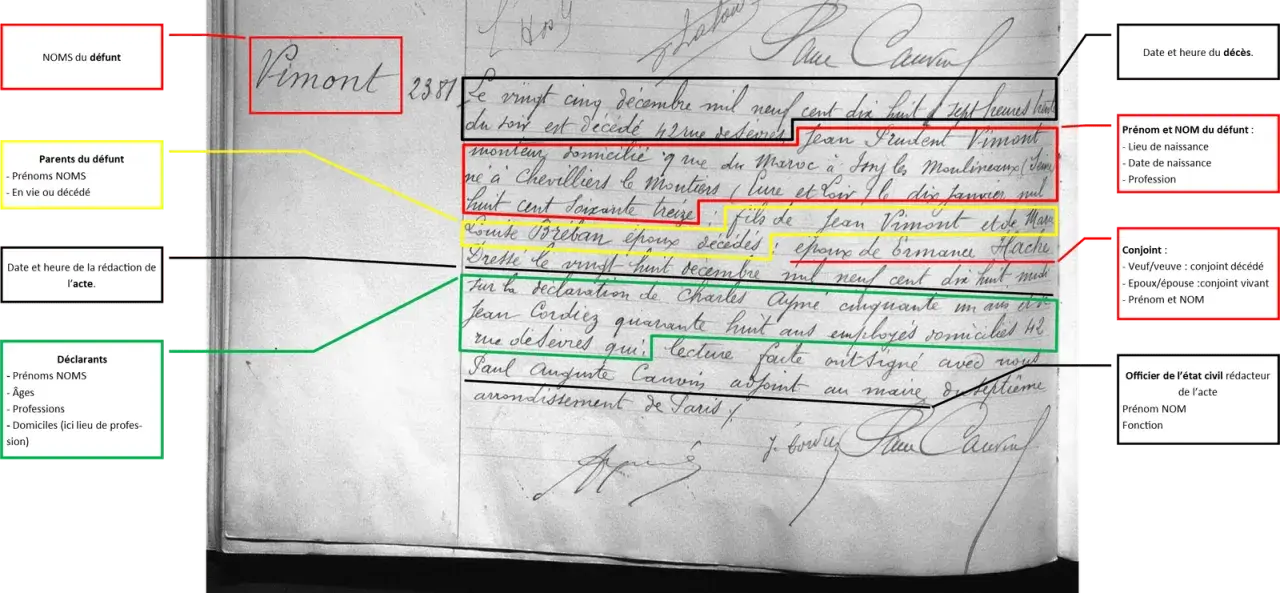 NOMS du défunt
Parents du défunt
- Prénoms NOMS
- En vie ou décédé
Date et heure de la rédaction de
l'acte.
Déclarants
- Prénoms NOMS
- Âges
- Professions
- Domiciles (ici lieu de profes-
sion)
Paul Cauvin
Vimont
2381
Le vingt cinq décembre mil neuf cent dix huit à sept heures trente
du soir est décédé 42 rue de Sèvres Jean Prudent Vimont
monteur domicilié 9 rue du Maroc à Issy les Moulineaux (Seine
né à Chevilliers le Moutiers (Eure et Loir) le dix janvier mil
huit cent soixante treize ; fils de Jean Vimont et de Marie
Louise Bréban époux décédés ; époux de Ermance Haché
Dressé le vingt huit décembre mil neuf cent dix huit midi
sur la déclaration de Charles Aymé cinquante un ans et de
Jean Cordiez quarante huit ans employés domiciliés 42
rue de Sèvres qui, lecture faite ont signé avec nous
Paul Auguste Cauvin adjoint au maire du septième
arrondissement de Paris /.
Paul Cauvin
Date et heure du décès.
Prénom et NOM du défunt :
- Lieu de naissance
- Date de naissance
- Profession
Conjoint :
- Veuf/veuve : conjoint décédé
- Epoux/épouse :conjoint vivant
- Prénom et NOM
Officier de l'état civil rédacteur
de l'acte
Prénom NOM
Fonction